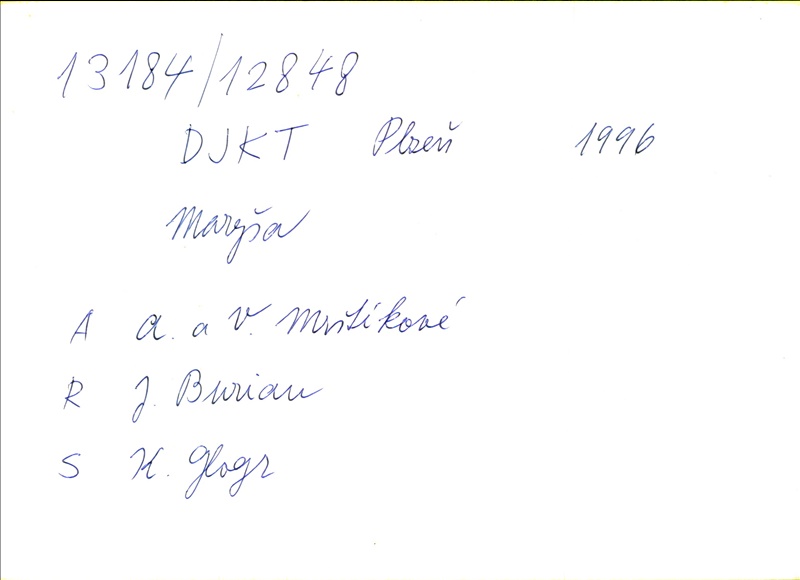 13184/12848
DJKT Plzeň 1996
Maryša
A A. a V. Mrštíkové
R J. Burian
S K. Glogr